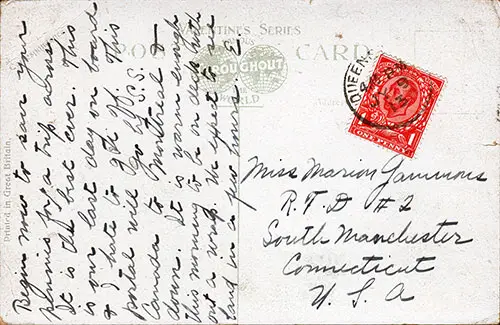 Begin now to save your
pennies for a trip across
It is the best ever. This
is our last day on board
& I hate to get off. This
postal will go
Canada to Montreal &
down. It is warm enough
this morning to be on deck with
out a wrap. We expect to see
land in a few hours. E
VALENTINES SERIES
POST CARD
THROUGHOUT
WORLD
Printed in Great Britain.
QUEEN
ONE PENNY
Miss Marion Gammons
R. F. D #2
South Manchester
Connecticut
U. S. A